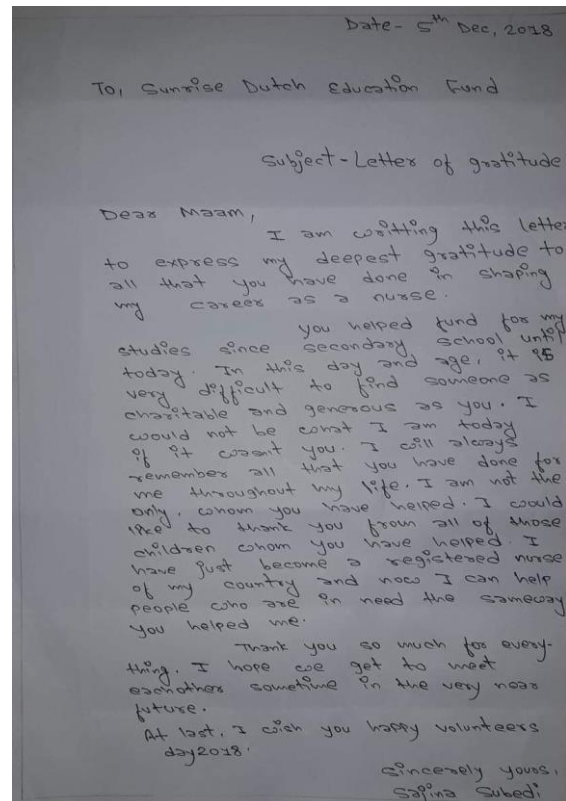 Date- 5th Dec, 2018
To, Sunrise Dutch Education Fund
Subject-Letter of gratitude
Dear Maam,
I am writting this letter
to express my deepest gratitude to
all that you have done in shaping
my career as a nurse.
you helped fund for my
studies since secondary school until
today. In this day and age, it is
very difficult to find someone as
charitable and generous as you. I
would not be what I am today
if it wasnt you. I will always
remember all that you have done for
me throughout my life. I am not the
only, whom you have helped. I would
like to thank you from all of those
children whom you have helped. I
have just become a registered nurse
of my country and now I can help
people who are in need the sameway
you helped me.
Thank you so much for every-
thing. I hope we get to meet
eachother sometime in the very near
future.
At last, I wish you happy volunteers
day2018.
Sincerely yours,
Sajina Subedi